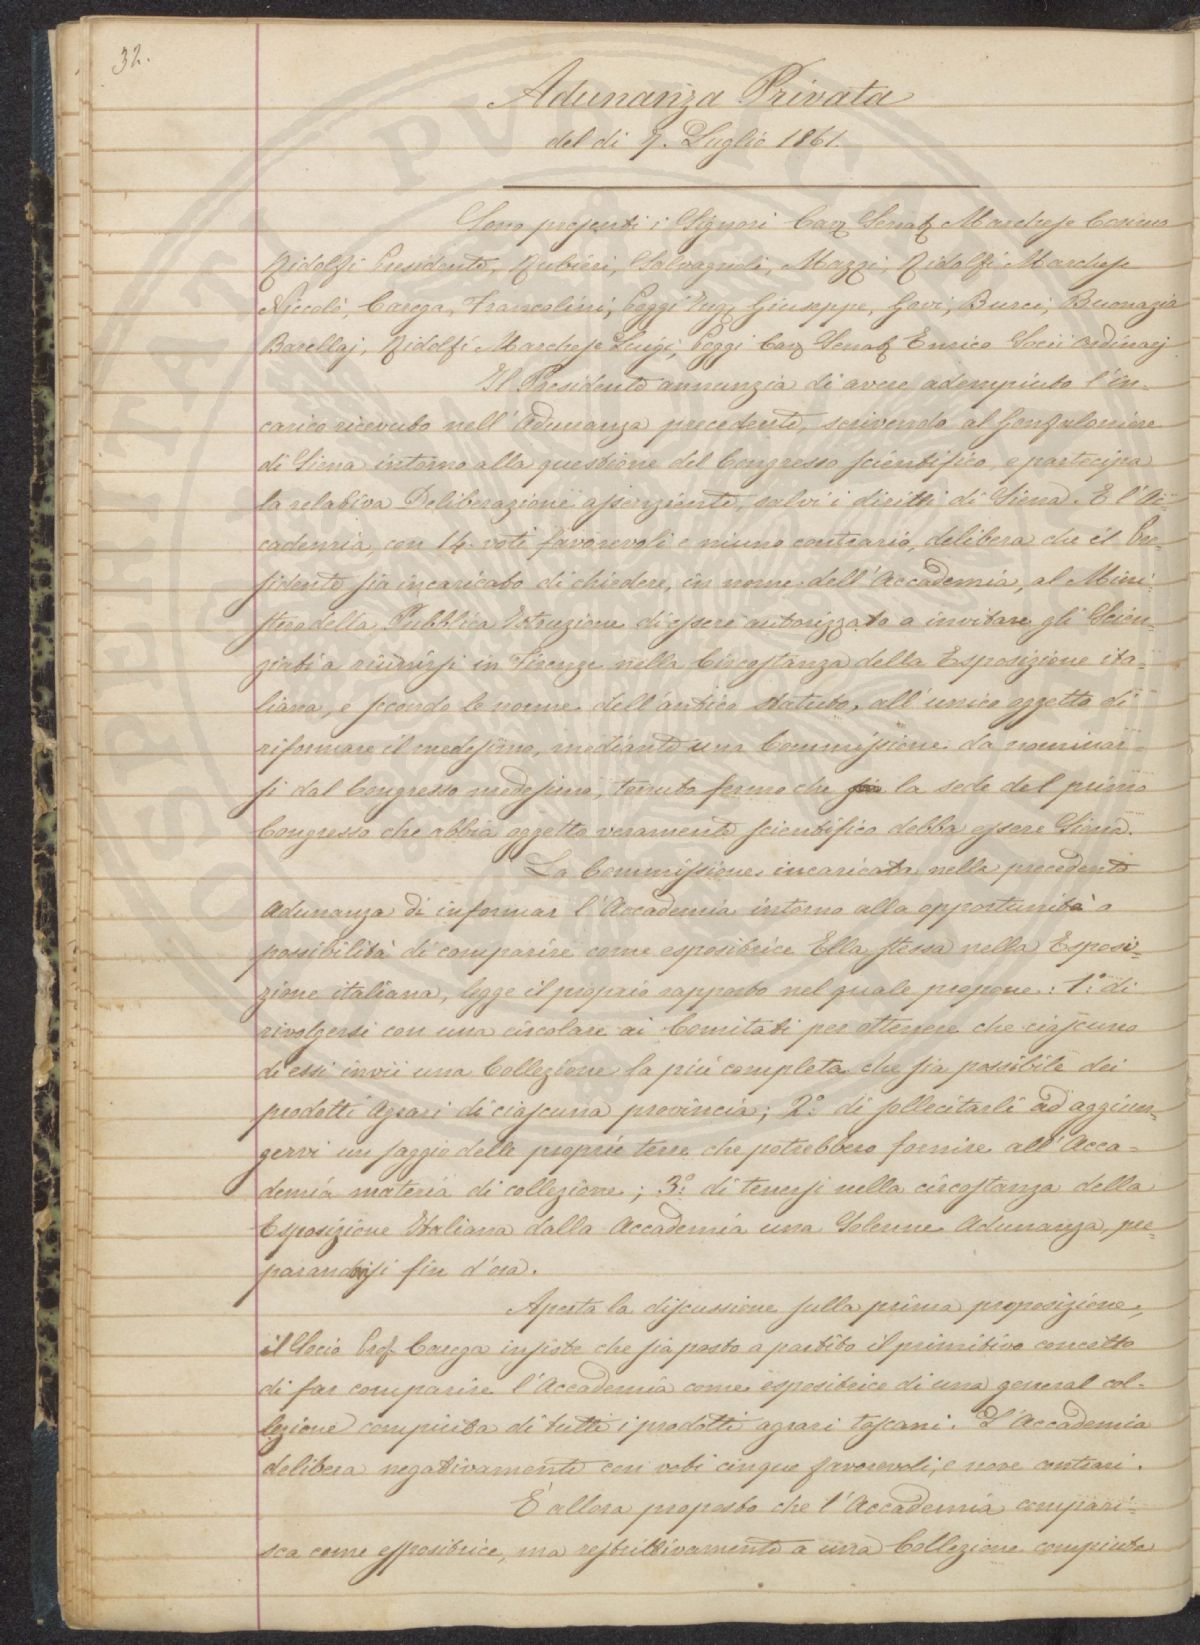 32.
Adunanza Privata
del di 7. Luglio 1861.
Sono presenti i Signori Cav. Senat. Marchese Cosimo
Ridolfi Presidente, Rubieri, Salvagnoli, Mazzi, Ridolfi Marchese
Niccolò, Carega, Francolini, Poggi Ing. Giuseppe, Govi, Burci, Buonazia
Barellaj, Ridolfi Marchese Luigi, Poggi Cav. Senat. Enrico Socii ordinarj
Il Presidente annunzia di avere adempiuto l'in-
carico ricevuto nell'Adunanza precedente, scrivendo al Gonfaloniere
di Siena intorno alla questione del Congresso scientifico, e partecipa
la relativa Deliberazione assenziente, salvi i diritti di Siena. E l'Ac-
cademia, con 14. voti favorevoli e niuno contrario, delibera che il Pre-
sidente sia incaricato di chiedere, in nome dell'Accademia, al Mini-
stero della Pubblica Istruzione di essere autorizzato a invitare gli Scien-
ziati a riunirsi in Firenze nella Circostanza della Esposizione ita-
liana, e secondo le norme dell'antico statuto, all'unico oggetto di
riformare il medesimo, mediante una Commissione da nominar-
si dal Congresso medesimo, tenuto fermo che la sede del primo
Congresso che abbia oggetto veramente scientifico debba essere Siena.
La Commissione incaricata nella precedente
Adunanza di informar l'Accademia intorno alla opportunità o
possibilità di comparire come espositrice Ella stessa nella Esposi-
zione italiana, legge il proprio rapporto nel quale propone: 1.° di
rivolgersi con una circolare ai Comitati per ottenere che ciascuno
di essi invii una Collezione la più completa che sia possibile dei
prodotti Agrari di ciascuna provincia; 2.° di sollecitarli ad aggiun-
gervi un saggio delle proprie terre che potrebbero fornire all'Acca-
demia materia di collezione; 3.° di tenersi nella circostanza della
Esposizione Italiana dalla Accademia una Solenne Adunanza, pre-
parandosi fin d'ora.
Aperta la discussione sulla prima proposizione,
il Socio Prof. Carega insiste che sia posto a partito il primitivo concetto
di far comparire l'Accademia come espositrice di una general col-
lezione compiuta di tutti i prodotti agrari toscani. L'Accademia
delibera negativamente con voti cinque favorevoli, e nove contrari.
È allora proposto che l'Accademia compari-
sca come espositrice, ma restrittivamente a una Collezione compiuta